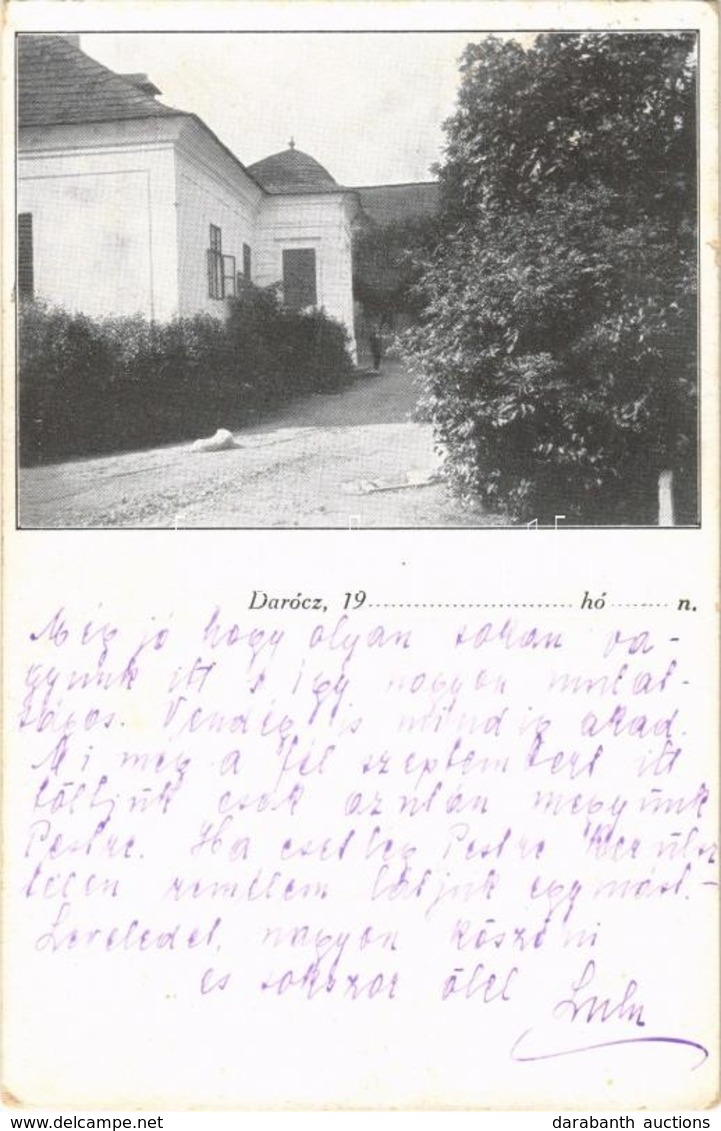 Darócz, 19.......................... hó........ n.
Még jó hogy olyan sokan va-
gyunk itt s így nagyon mulat-
ságos. Vendég is mindig akad.
Mi meg a fél szeptembert itt
töltjük csak azután megyünk
Pestre. Ha esetleg Pestre kerülsz
télen remélem látjuk egymást.-
Leveledet, nagyon köszöni
és sokszor ölel Lulu
darabanth auctions